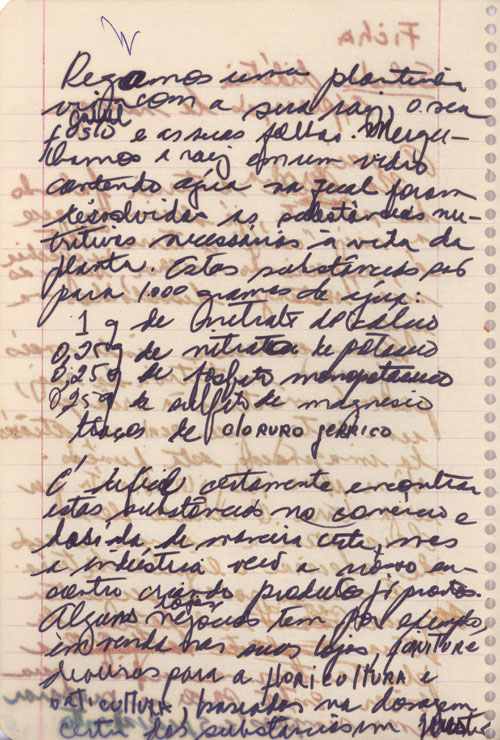 Ficha
Pegamos uma plantinha
viva com a sua raiz, o seu
caule
e as suas folhas. Mergu-
lhamos a raiz em um vidro
contendo água na qual foram
dissolvidas as substâncias nu-
tritivas necessárias à vida da
planta. Estas substâncias são
para 1000 gramas de água:
1 g de nitrato de cálcio
0,25g de nitrato de potássio
0,25g de fosfato monopotássico
0,25g de sulfato de magnésio
traços de CLORURO FERRICO
É difícil certamente encontrar
estas substâncias no comércio e
de maneira certa, mas
a indústria veio a nosso en-
contro criando produtos já prontos.
Alguns negócios tem por exemplo,
em venda nas suas lojas,
para a FLORICULTURA e
ORTICULTURA, baseados na dosagem
certa das substancias em